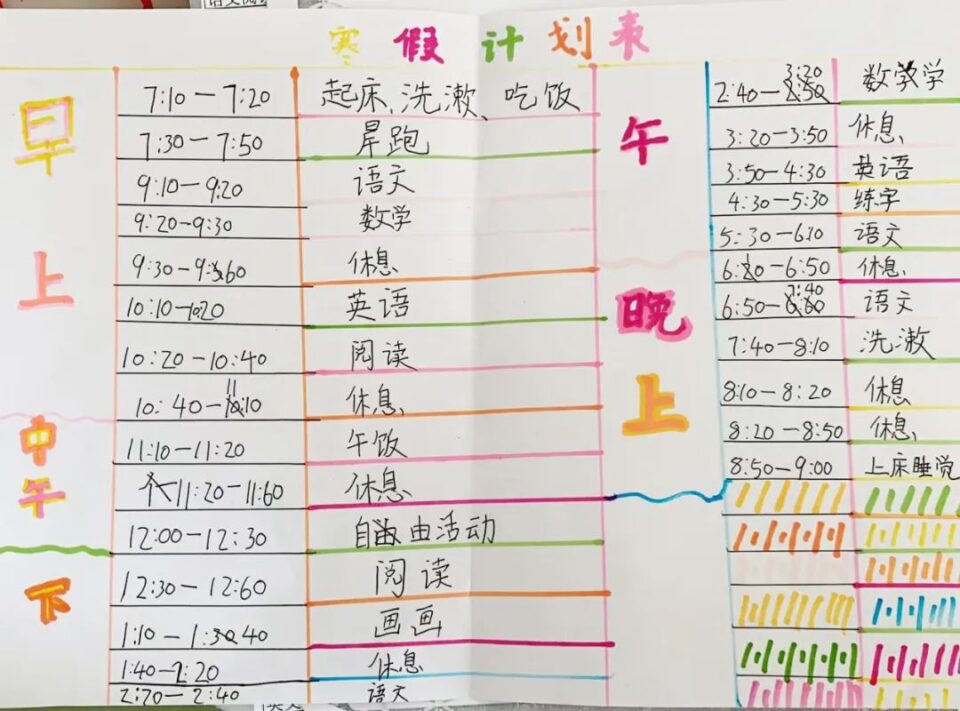 寒假计划表
早上
7:10－7:20 起床、洗漱、吃饭
7:30－7:50 晨跑
9:10－9:20 语文
9:20－9:30 数学
9:30－9:60 休息
10:10－10:20 英语
10:20－10:40 阅读
10:40－11:10 休息
中午
11:10－11:20 午饭
11:20－11:60 休息
12:00－12:30 自由活动
下
12:30－12:60 阅读
1:10－1:40 画画
1:40－2:20 休息
2:20－2:40 语文
午
2:40－3:20 数学
3:20－3:50 休息
3:50－4:30 英语
4:30－5:30 练字
5:30－6:10 语文
晚上
6:10－6:50 休息
6:50－7:40 语文
7:40－8:10 洗漱
8:10－8:20 休息
8:20－8:50 休息
8:50－9:00 上床睡觉